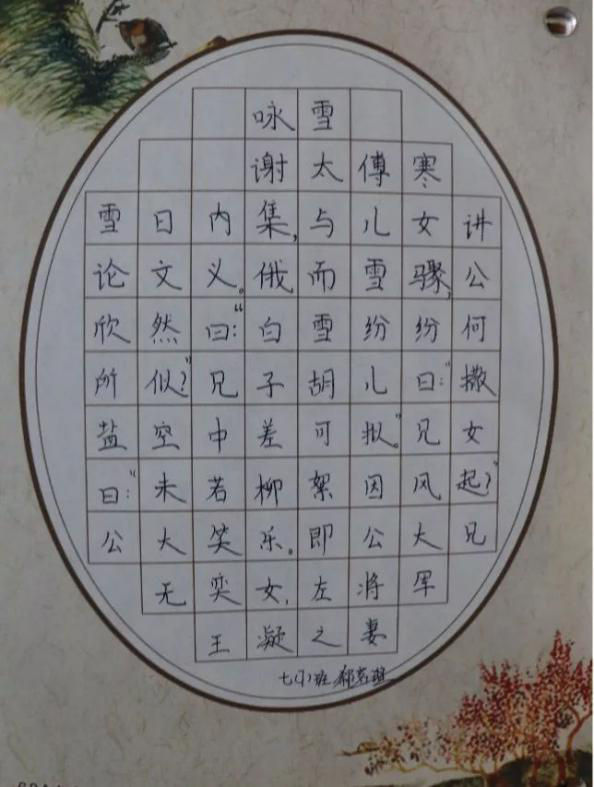 咏雪
谢太傅寒
雪日内集,与儿女讲
论文义。俄而雪骤,公
欣然曰:“白雪纷纷何
所似?”兄子胡儿曰:“撒
盐空中差可拟。”兄女
曰:“未若柳絮因风起?”
公大笑乐。即公大兄
无奕女,左将军
王凝之妻
七(1)班